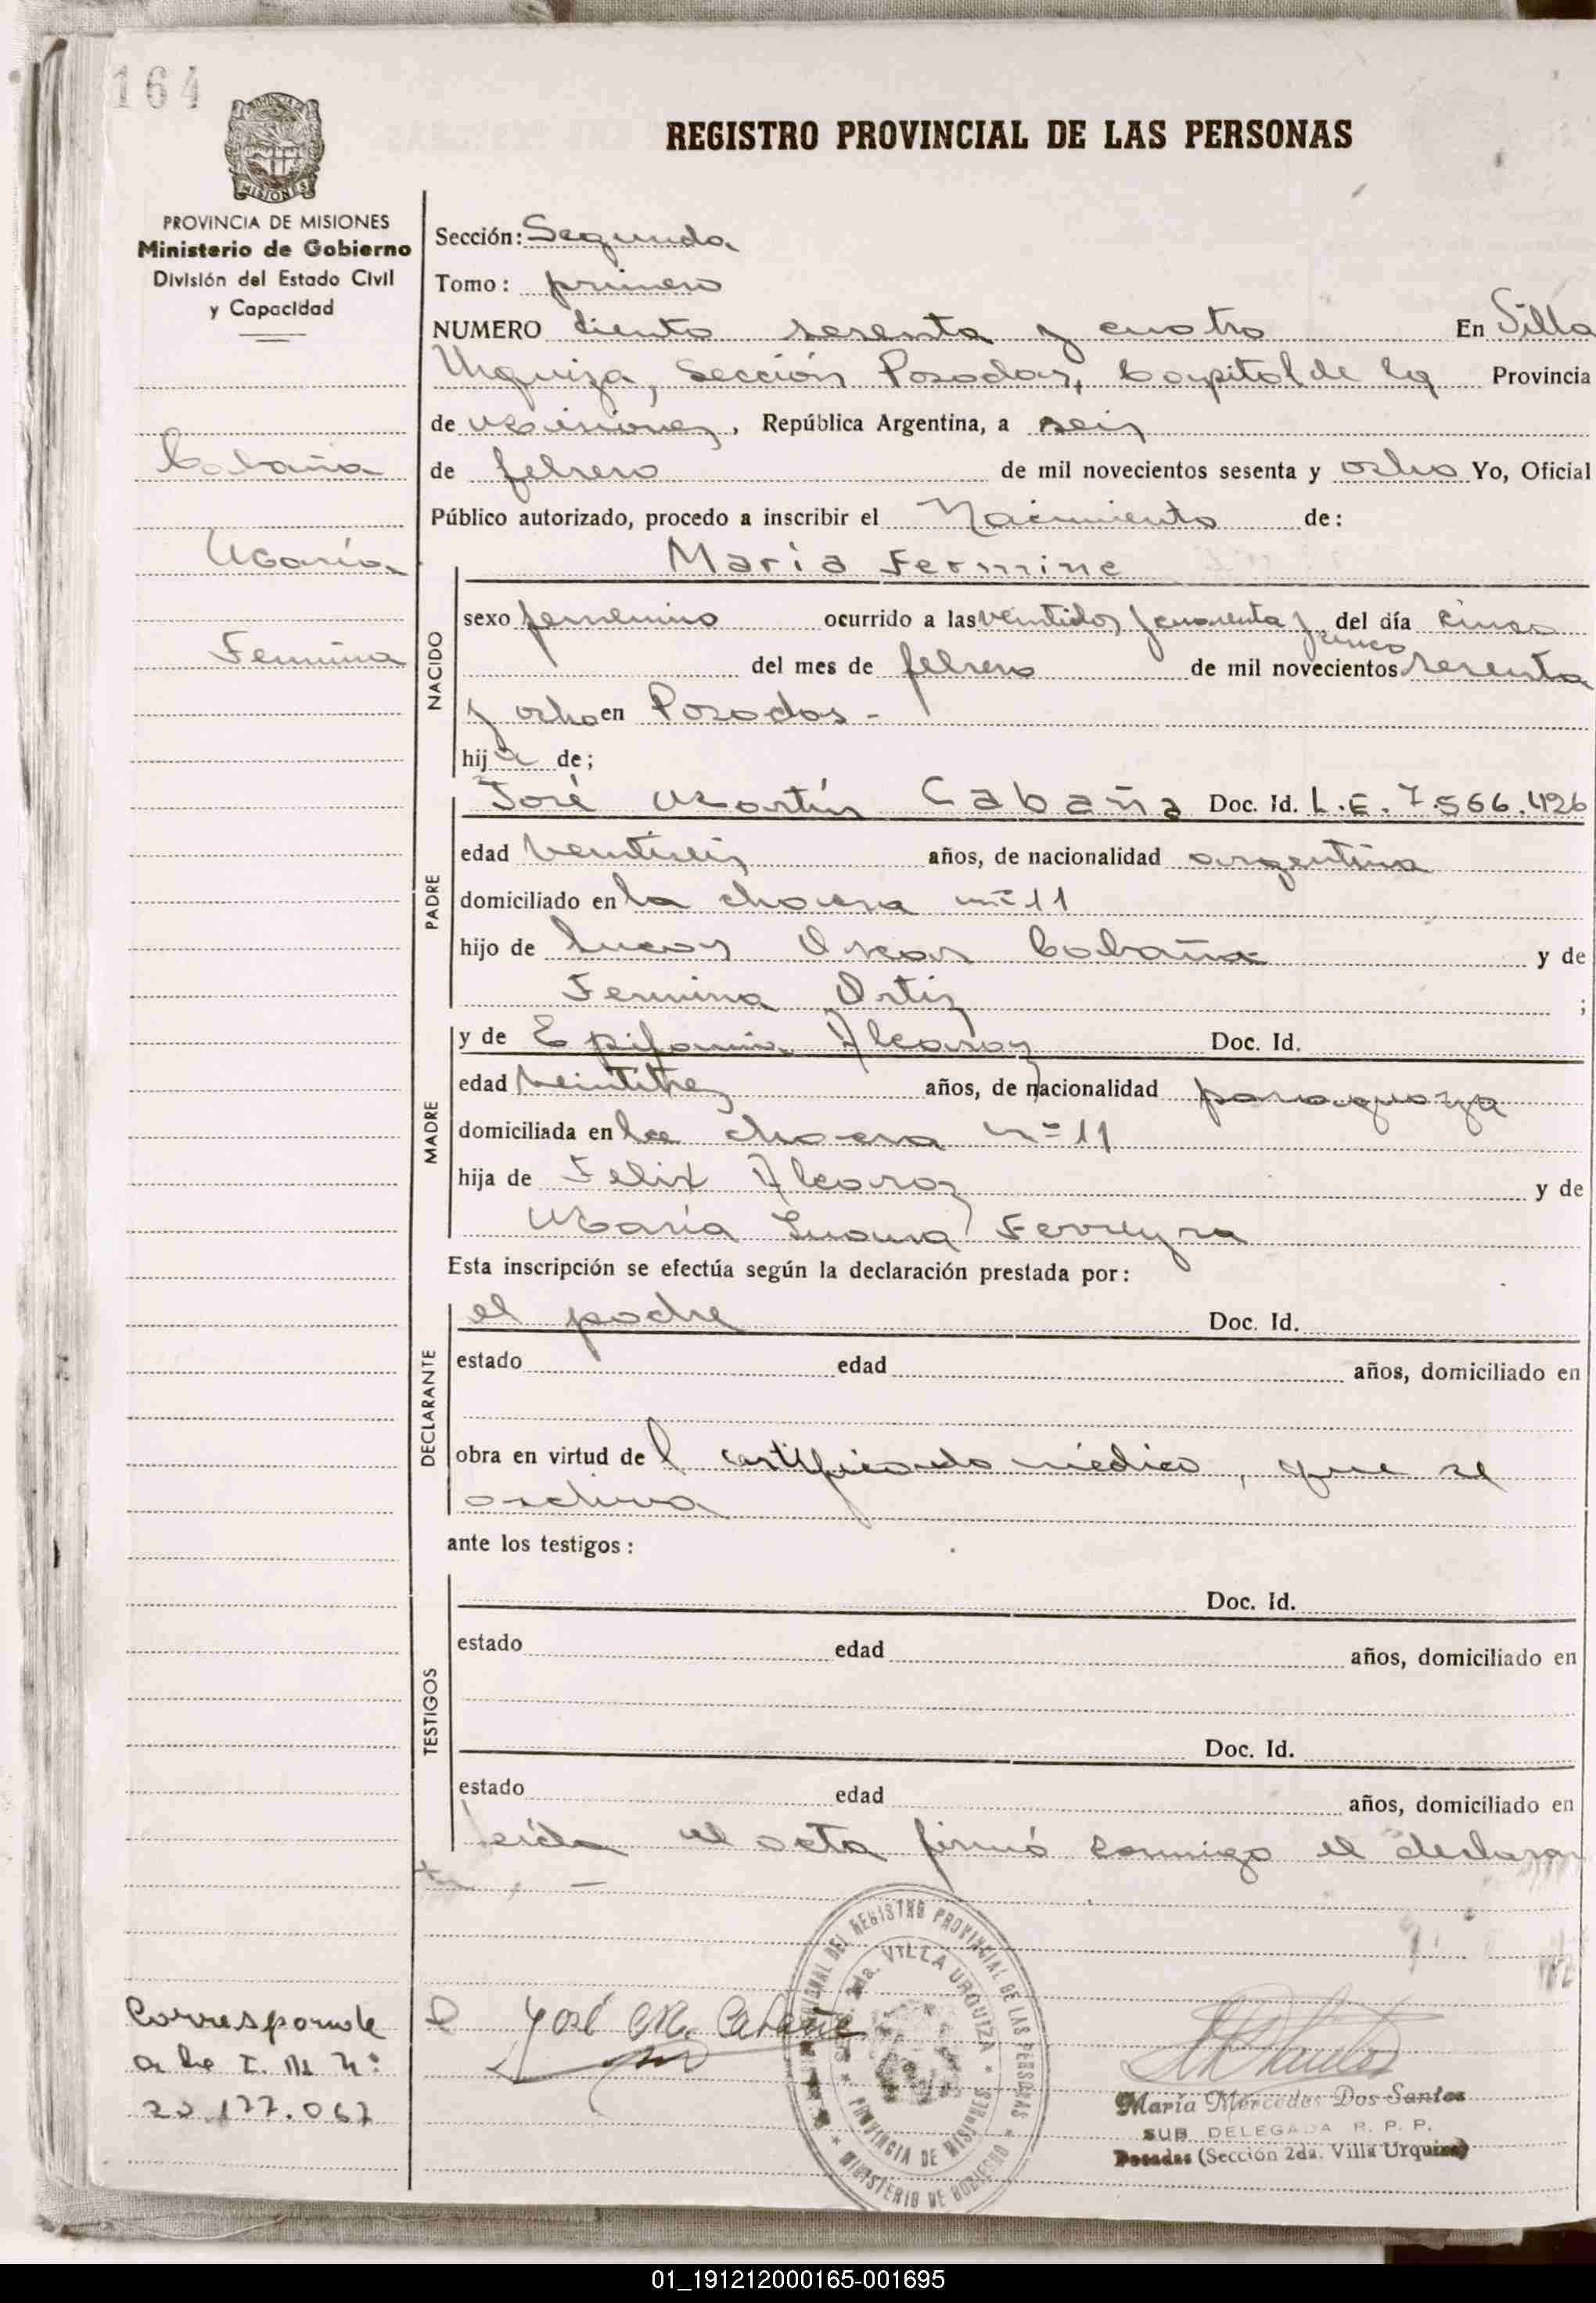 164
REGISTRO PROVINCIAL DE LAS PERSONAS
MISIONES
PROVINCIA DE MISIONES
Ministerio de Gobierno
División del Estado Civil
y Capacidad
Cabaña
María
Fermina
Sección: Segunda
Tomo: primero
NUMERO ciento sesenta y cuatro En Villa
Urquiza, Sección Posadas, Capital de la Provincia
de Misiones, República Argentina, a seis
de febrero de mil novecientos sesenta y ocho Yo, Oficial
Público autorizado, procedo a inscribir el Nacimiento de:
María Fermina
NACIDO
sexo femenino ocurrido a las veintidos y cuarenta y cinco del día cinco
del mes de febrero de mil novecientos sesenta
y ocho en Posadas -
hija de;
PADRE
José Martín Cabaña Doc. Id. L.E. 7.566.426
edad veintiseis años, de nacionalidad argentina
domiciliado en la chacra nº 11
hijo de Lucas Oscar Cabaña y de
Fermina Ortiz ;
MADRE
y de Epifania Alcaraz Doc. Id.
edad veintitres años, de nacionalidad paraguaya
domiciliada en la chacra nº 11
hija de Felix Alcaraz y de
María Ferreyra
Esta inscripción se efectúa según la declaración prestada por:
DECLARANTE
el padre Doc. Id.
estado edad años, domiciliado en
obra en virtud del certificado médico, que se
archiva
ante los testigos:
TESTIGOS
Doc. Id.
estado edad años, domiciliado en
Doc. Id.
estado edad años, domiciliado en
Leída el acta firmó conmigo el declaran
te, -
Corresponde
a la I. M Nº
20.177.067
José M. Cabaña
DEL REGISTRO PROVINCIAL DE LAS PERSONAS
MINISTERIO DE GOBIERNO
2da. VILLA URQUIZA
PROVINCIA DE MISIONES
María Mercedes Dos Santos
SUB DELEGADA R. P. P.
Posadas (Sección 2da. Villa Urquiza)
01_191212000165-001695